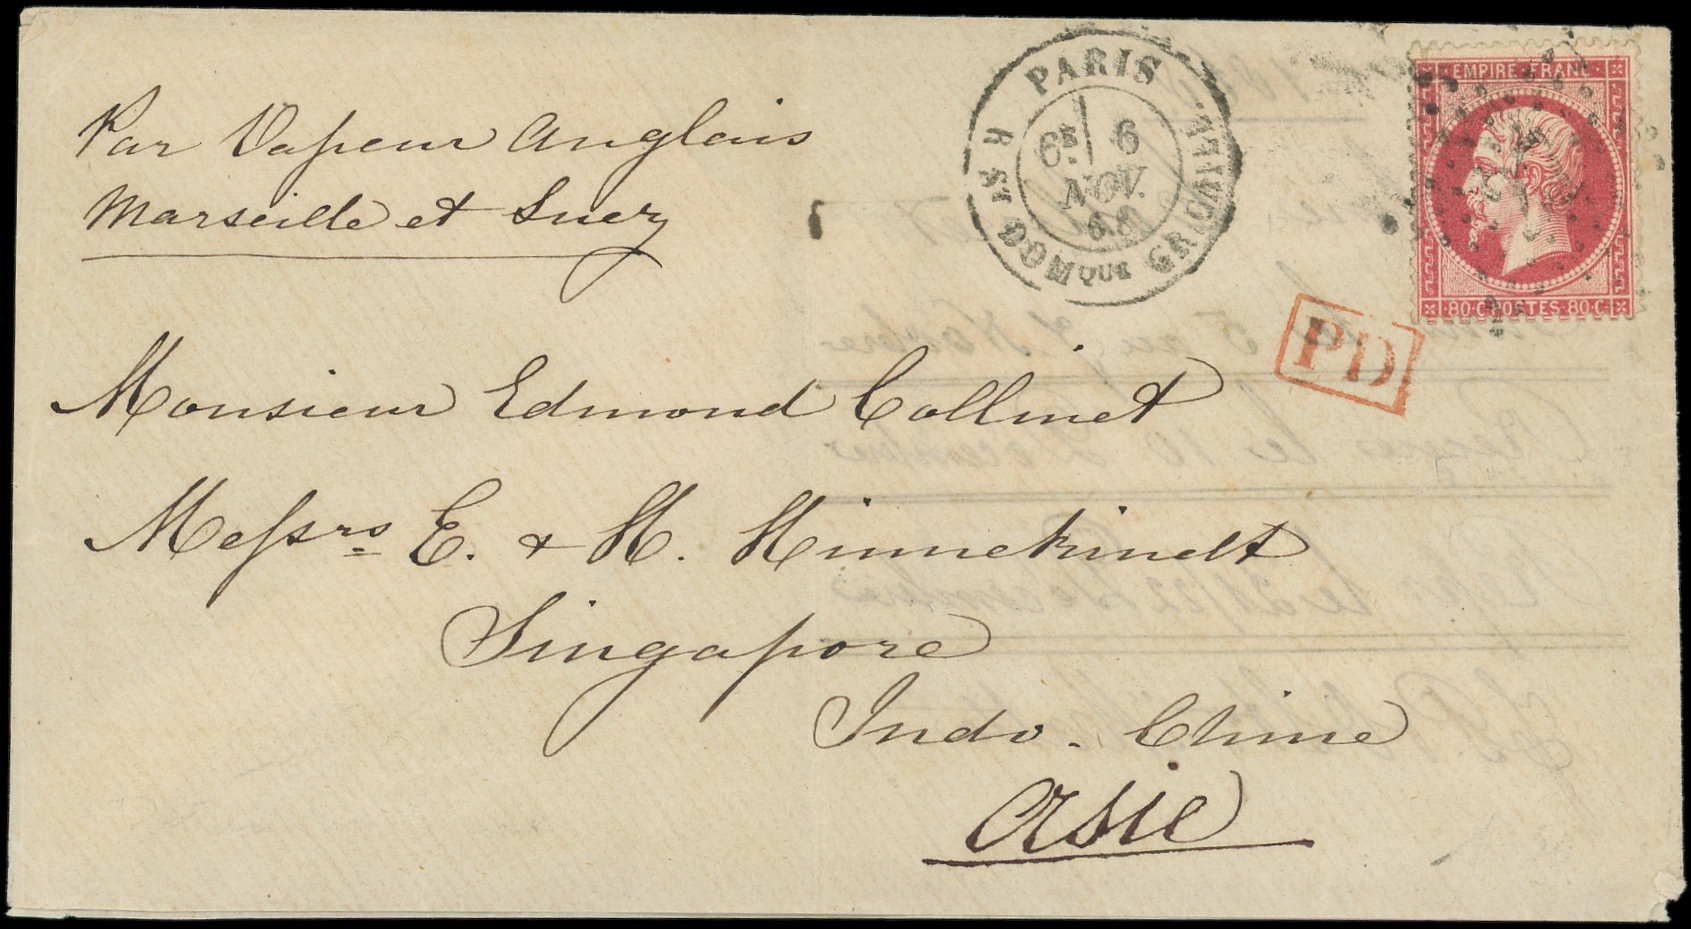 Par Vapeur Anglais
Marseille et Suez
PARIS
R. ST DOMQUE GR
6E 6
NOV.
68
EMPIRE FRANC
80·C·POSTES·80·C
PD
Monsieur Edmond Collinet
Messrs E. & H. Hinnekindt
Singapore
Indo-Chine
Asie